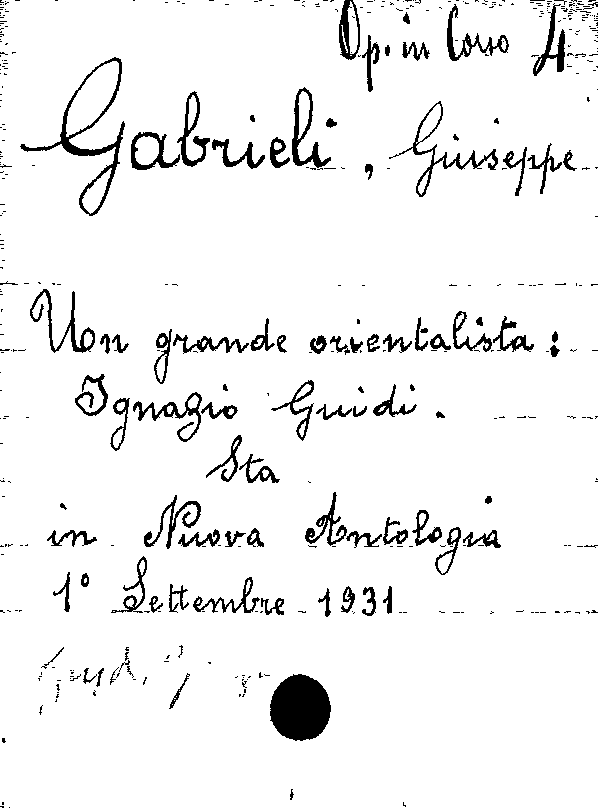 Op. in Corso 4
Gabrieli, Giuseppe
Un grande orientalista:
Ignazio Guidi.
Sta
in Nuova Antologia
1º Settembre 1931